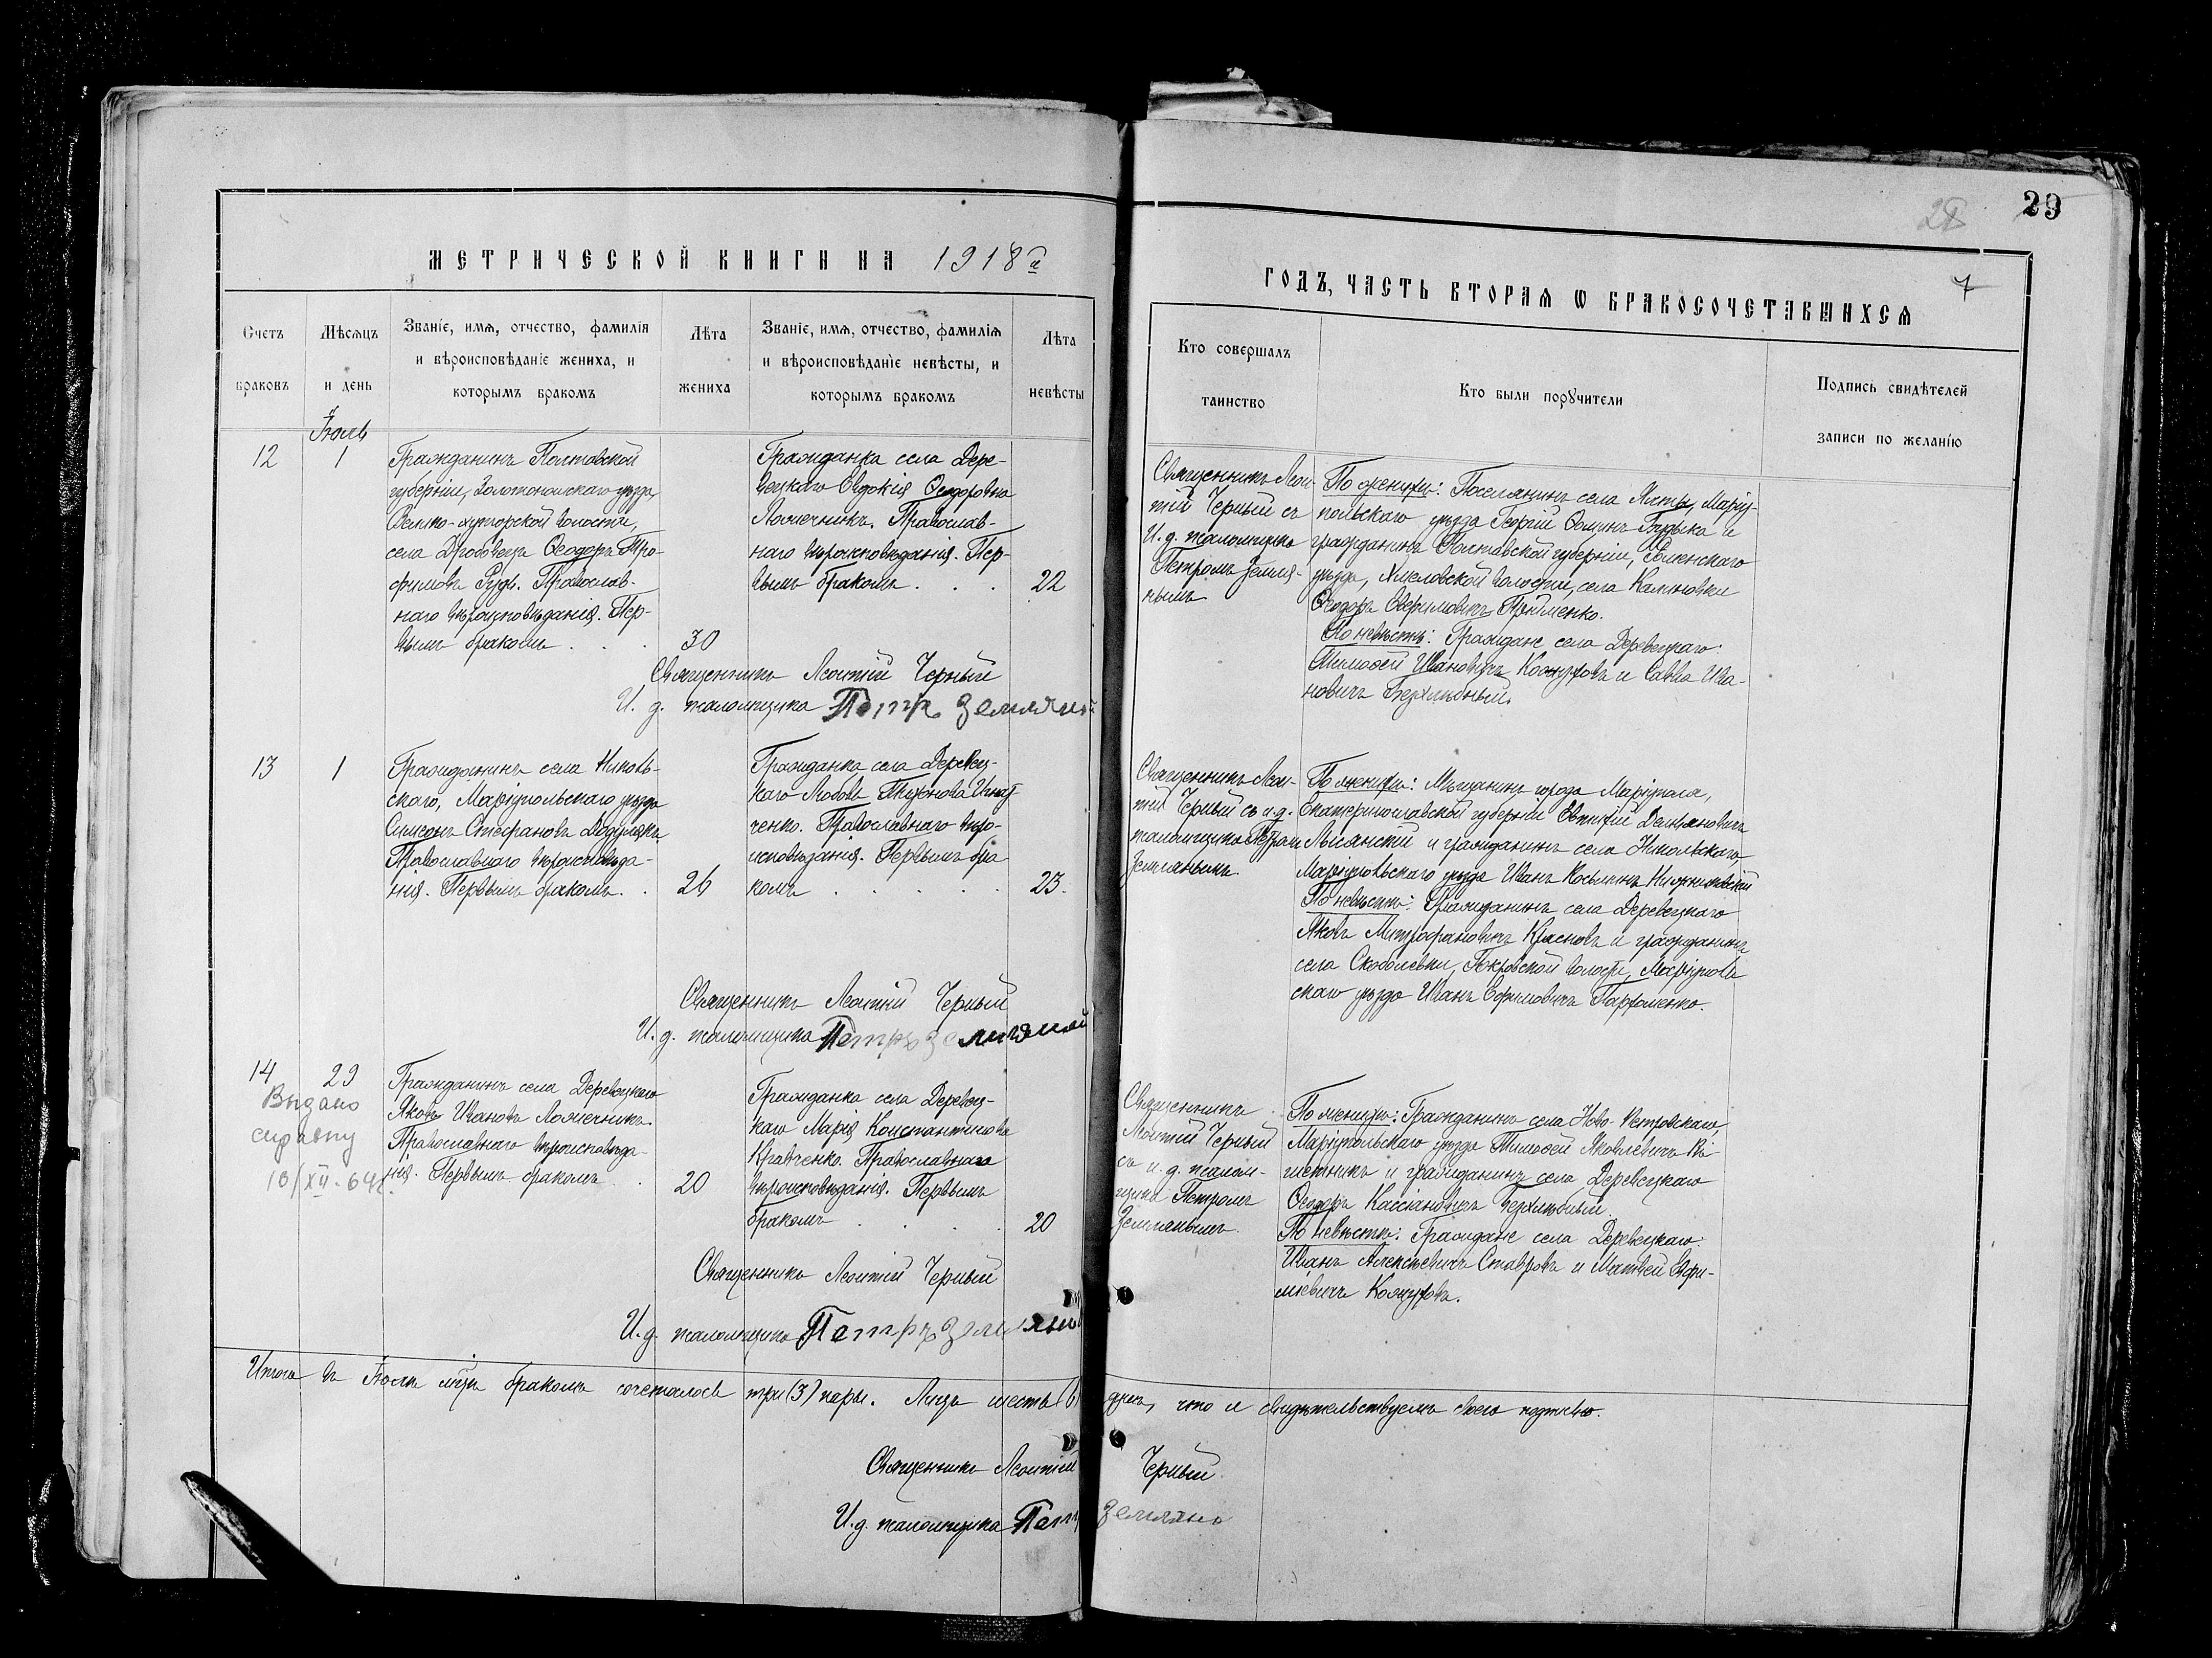 29
28
7
МЕТРИЧЕСКОЙ КНИГИ НА 1918 й
ГОДЪ, ЧАСТЬ ВТОРАЯ Ѡ БРАКОСОЧЕТАВШИХСЯ
Счетъ браковъ
Мѣсяцъ и день
Званіе, имя, отчество, фамилія
и вѣроисповѣданіе жениха, и
которымъ бракомъ
Лѣта жениха
Званіе, имя, отчество, фамилія
и вѣроисповѣданіе невѣсты, и
которымъ бракомъ
Лѣта невѣсты
Кто совершалъ
таинство
Кто были порꙋчители
Подпись свидѣтелей
записи по желанію
Іюль
12
1
Гражданинъ Полтавской
губерніи, Золотоношскаго уѣзда,
волости,
села Ѳеодоръ Тро-
фимовъ Рудь. Православ-
наго вѣроисповѣданія. Пер-
вымъ бракомъ . . .
30
Гражданка села Дере-
вецкаго Евдокія Ѳеодоровна
Ложечникъ. Православ-
наго вѣроисповѣданія. Пер-
вымъ бракомъ . . .
22
Священникъ Леон-
тій Черный съ
И. д. псаломщика
Петромъ Земля-
нымъ
По женихѣ: Поселянинъ села Ялты, Маріу-
польскаго уѣзда Георгій Ѳоминъ и
гражданинъ Полтавской губерніи, Роменскаго
уѣзда, волости, села
Ѳеодоръ
По невѣстѣ: Граждане села Деревецкаго:
Тимоѳей Ивановичъ Кожуховъ и Савва Ива-
новичъ Верхлюбный.
Священникъ Леонтій Черный
И. д. псаломщика Петръ Земляной
13
1
Гражданинъ села Николь-
скаго, Маріупольскаго уѣзда
Симеонъ Стефановъ
Православнаго вѣроисповѣда-
нія. Первымъ бракомъ. .
26
Гражданка села Деревец-
каго Любовь Тихонова Игнат-
ченко. Православнаго вѣро-
исповѣданія. Первымъ бра-
комъ . . . . .
23.
Священникъ Леон-
тій Черный съ и.д.
псаломщика Петромъ
Землянымъ.
По женихѣ: Мѣщанинъ города Маріуполя,
Екатеринославской губерніи Евтихій Демьяновичъ
Лысянскій и гражданинъ села Никольскаго,
Маріупольскаго уѣзда Иванъ Косьминъ
По невѣстѣ: Гражданинъ села Деревецкаго
Яковъ Митрофановичъ Красновъ и гражданинъ
села Скобелевки, Покровской волости, Маріуполь-
скаго уѣзда Иванъ Ефимовичъ Пархоменко.
Священникъ Леонтій Черный
И. д. псаломщика Петръ Земляной
14
29
Выдано
справку
18/XII-64г.
Гражданинъ села Деревецкаго
Яковъ Ивановъ Ложечникъ.
Православнаго вѣроисповѣда-
нія. Первымъ бракомъ . .
20
Гражданка села Деревец-
каго Марія Константинова
Кравченко. Православнаго
вѣроисповѣданія. Первымъ
бракомъ . . . .
20
Священникъ
Леонтій Черный
съ и. д. псалом-
щика Петромъ
Землянымъ.
По женихѣ: Гражданинъ села Ново-Петровскаго,
Маріупольскаго уѣзда Тимоѳей Яковлевичъ
и гражданинъ села Деревецкаго
Ѳеодоръ Кассіановичъ Верхлюбный.
По невѣстѣ: Граждане села Деревецкаго:
Иванъ Алексѣевичъ Ставровъ и Матвей Евфи-
міевичъ Кожуховъ.
Священникъ Леонтій Черный
И. д. псаломщика Петръ Земляной
Итого въ Іюлѣ м-цѣ бракомъ сочеталось три (3) пары. Лицъ шесть (6) душъ, что и свидѣтельствуемъ своею подписью.
Священникъ Леонтій Черный.
И. д. псаломщика Петръ Земляно